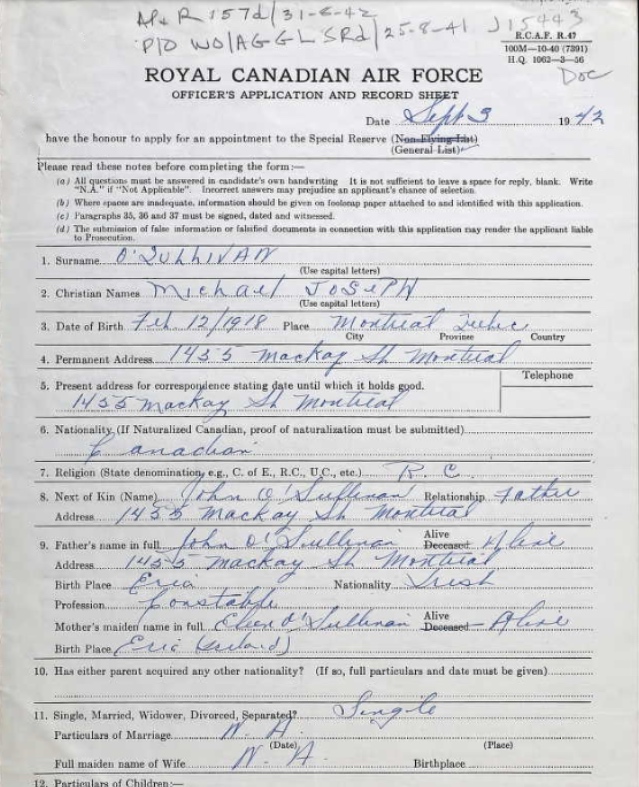 AP&R 157d/31-8-42
P/O WO/AGGLSRd/25-8-41 J15443
R.C.A.F. R.47
100M—10-40 (7391)
H.Q. 1062—3—56
Doc
ROYAL CANADIAN AIR FORCE
OFFICER'S APPLICATION AND RECORD SHEET
Date Sept 3 1942
have the honour to apply for an appointment to the Special Reserve (Non-Flying List)
(General List)
Please read these notes before completing the form:—
(a) All questions must be answered in candidate's own handwriting It is not sufficient to leave a space for reply, blank. Write
"N.A." if "Not Applicable". Incorrect answers may prejudice an applicant's chance of selection.
(b) Where spaces are inadequate, information should be given on foolscap paper attached to and identified with this application.
(c) Paragraphs 35, 36 and 37 must be signed, dated and witnessed.
(d) The submission of false information or falsified documents in connection with this application may render the applicant liable
to Prosecution.
1. Surname O'SULLIVAN
(Use capital letters)
2. Christian Names Michael JOSEPH
(Use capital letters)
3. Date of Birth Feb 12/1918 Place Montreal Quebec
City Province Country
4. Permanent Address. 1455 Mackay St Montreal
5. Present address for correspondence stating date until which it holds good. Telephone
1455 Mackay St Montreal
6. Nationality. (If Naturalized Canadian, proof of naturalization must be submitted)
Canadian
7. Religion (State denomination, e.g., C. of E., R.C., U.C., etc.) R.C.
8. Next of Kin (Name) John O'Sullivan Relationship Father
Address 1455 Mackay St Montreal
9. Father's name in full John O'Sullivan Alive Deceased Alive
Address 1455 Mackay St Montreal
Birth Place Eria Nationality Irish
Profession Constable
Mother's maiden name in full Ellen O'Sullivan Alive Deceased Alive
Birth Place Eria (Ireland)
10. Has either parent acquired any other nationality? (If so, full particulars and date must be given)
11. Single, Married, Widower, Divorced, Separated? Single
Particulars of Marriage N.A.
(Date) (Place)
Full maiden name of Wife N.A. Birthplace
12. Particulars of Children:—